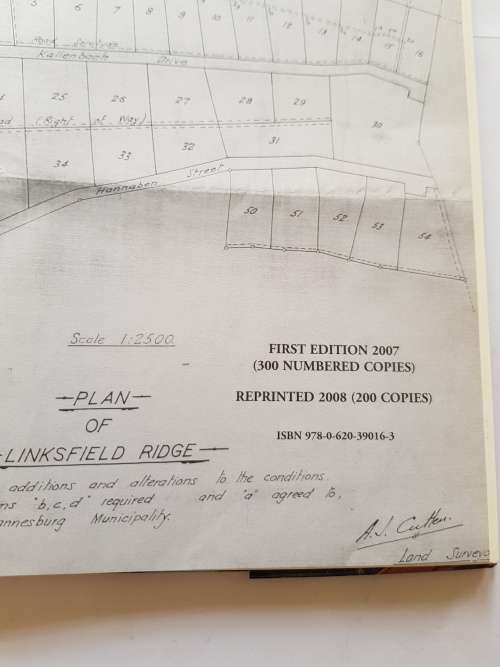 5 6 7 8 9 10 11 12 13 14 15 16
Road Servitude
Kallenbach Drive
25 26 27 28 29 30
(Right of Way)
34 33 32 31
Hannaben Street
50 51 52 53 54
Scale 1:2500.
FIRST EDITION 2007
(300 NUMBERED COPIES)
REPRINTED 2008 (200 COPIES)
ISBN 978-0-620-39016-3
PLAN
OF
LINKSFIELD RIDGE
additions and alterations to the conditions.
"b,c,d" required and "a" agreed to,
Municipality.
A.J. Cutten.
Land Surveyo